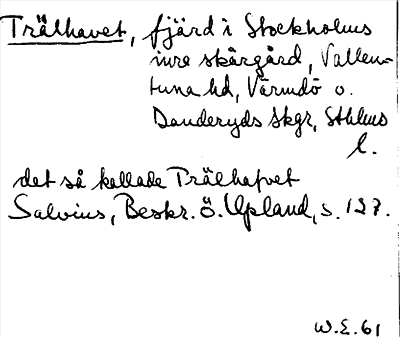 Trälhavet, fjärd i Stockholms
inre skärgård, Vallen-
tuna hd, Värmdö o.
Danderyds skgr, Sthlms
l.
det så kallade Trälhafvet
Salvius, Beskr. ö. Upland, s. 127.
W.E. 61